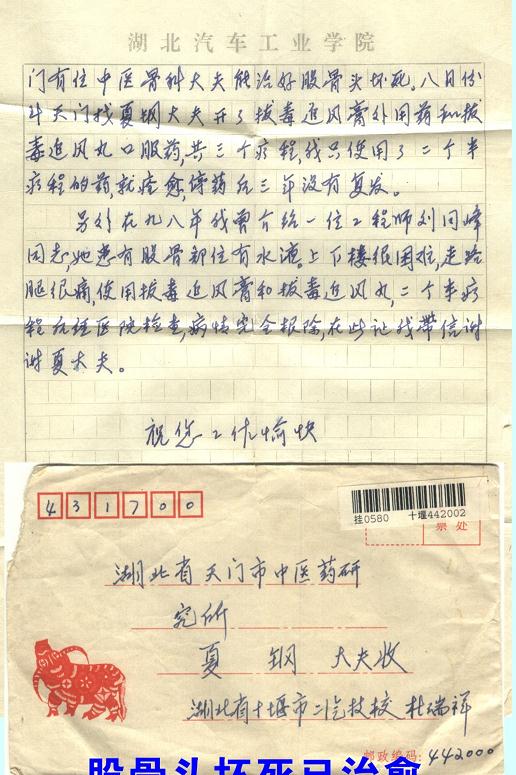 湖北汽车工业学院
门有位中医骨科大夫能治好股骨头坏死。八月份
去天门找夏钢大夫开了拔毒追风膏外用药和拔
毒追风丸口服药,共三个疗程,我只使用了二个半
疗程的药,就痊愈,停药后三年没有复发。
另外在九八年我曾介绍一位工程师刘同峰
同志,她患有股骨部位有水液。上下楼很困难,走路
腿很痛,使用拔毒追风膏和拔毒追风丸,二个半疗
程后经医院检查,病情完全根除,在此让我带信谢
谢夏大夫。
祝您工作愉快
431700
挂0580 十堰442002
票处
湖北省天门市中医药研
究所
夏钢 大夫收
湖北省十堰市二汽技校 杜瑞祥
邮政编码:442000
股骨头坏死已治愈